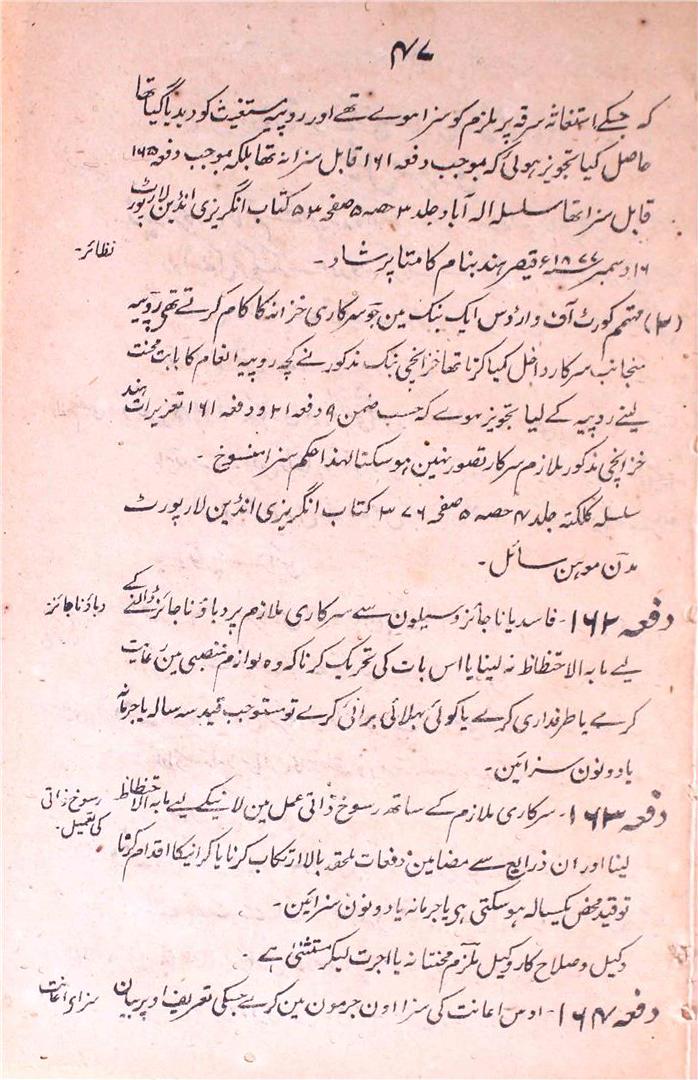 ۴۷
کہ جسکے استغاثہ سرقہ پر ملزم کو سزا ہوے تھے اور روپیہ مستغیث کو دیدیا گیا تھا
حاصل کیا تجویز ہوئی کہ بموجب دفعہ ۱۶۱ قابل سزا نہ تھا بلکہ بموجب دفعہ ۱۶۵
قابل سزا تھا سلسلہ الہ آباد جلد ۳ حصہ ۵ صفحہ ۵۳۰ کتاب انگریزی انڈین لا رپورٹ
۱۶ دسمبر ۱۸۷۷ء قیصر ہند بنام کامتا پرشاد ۔
نظائر ۔
(۳) مہتمم کورٹ آف وارڈس ایک بنک مین جو سرکاری خزانہ کا کام کرتے تھی روپیہ
منجانب سرکار داخل کیا کرتا تھا خزانچی بنک مذکور نے کچھ روپیہ انعام کا بابت محنت
لینے روپیہ کے لیا تجویز ہوے کہ حسب ضمن ۹ دفعہ ۲۱ و دفعہ ۱۶۱ تعزیرات ہند
خزانچی مذکور ملازم سرکار تصور نہین ہو سکتا لہذا حکم سزا منسوخ ۔
سلسلہ کلکتہ جلد ۴ حصہ ۵ صفحہ ۳۷۶ کتاب انگریزی انڈین لا رپورٹ
مدن موہن سائل ۔
دفعہ ۱۶۲ ۔ فاسد یا ناجائز وسیلون سے سرکاری ملازم پر دباؤ ناجائز ڈالنے کے
دباؤ ناجائز
لیے مابہ الاحتظاظ نہ لینا یا اس بات کی تحریک کرنا کہ وہ لوازم منصبی مین رعایت
کرے یا طرفداری کرے یا کوئی بہلائی برائی کرے تو مستوجب قید سہ سالہ یا جرمانہ
یا دونون سزائین ۔
دفعہ ۱۶۳ ۔ سرکاری ملازم کے ساتھ رسوخ ذاتی عمل مین لانیکے لیے مابہ الاحتظاظ
رسوخ ذاتی
کی تعمیل ۔
لینا اور ان ذرایع سے مضامین دفعات ملحقہ بالا ارتکاب کرنا یا کرانیکا اقدام کرنا
تو قید محض یکسالہ ہو سکتی ہی یا جرمانہ یا دونون سزائین ۔
وکیل و صلاح کار وکیل ملزم محنتانہ یا اجرت لیکر مستثنیٰ ہے ۔
دفعہ ۱۶۴ ۔ اوس اعانت کی سزا اون جرمون مین کرے جسکی تعریف اوپر بیان
سزای اعانت